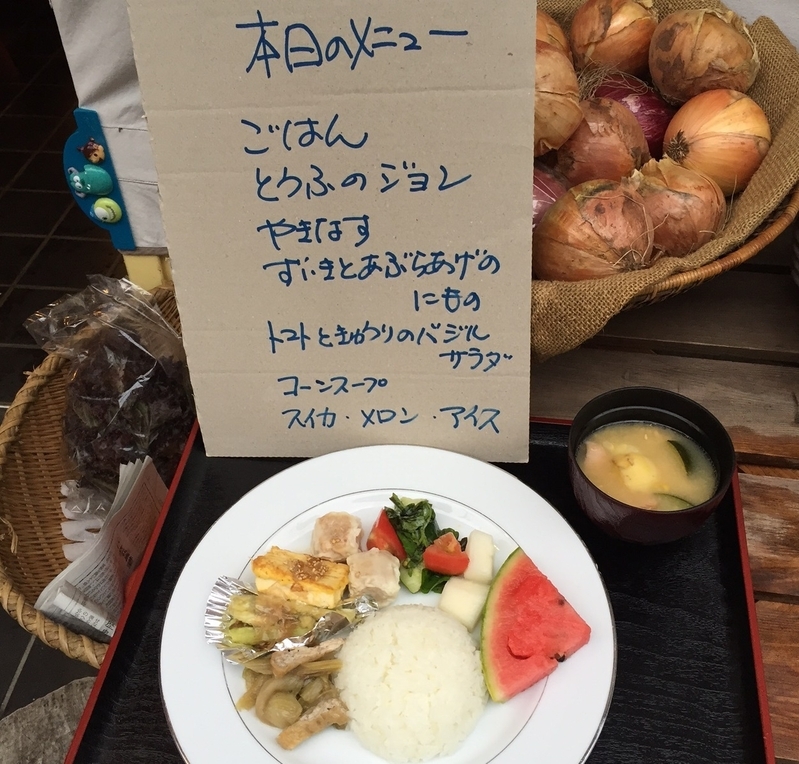 本日のメニュー
ごはん
とうふのジョン
やきなす
ずいきとあぶらあげの
にもの
トマトときゅうりのバジル
サラダ
コーンスープ
スイカ・メロン・アイス